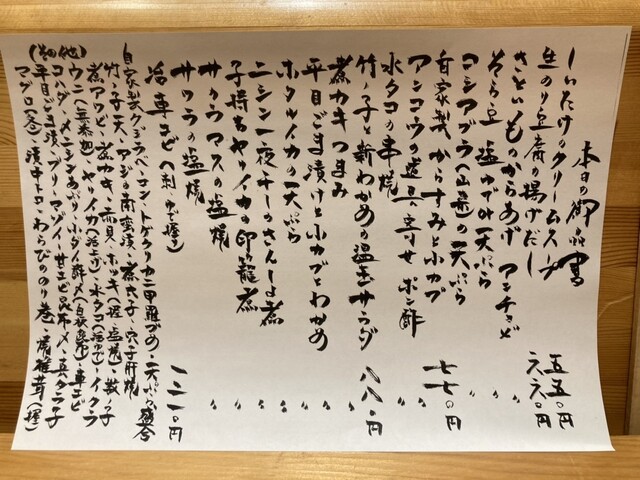 本日の御品書
しいたけのクリームスープ 五五〇円
生のり豆腐の揚げだし 六六〇円
さといものからあげ アンチョビ 〃
そら豆 塩ゆでor天ぷら 〃
コシアブラ(山菜)の天ぷら 〃
自家製からすみと小カブ 七七〇円
アンコウの煮こごり ポン酢 〃
水タコの串焼 〃
竹ノ子と新わかめの温玉サラダ 八八〇円
煮カキつまみ 〃
平目ごま漬けと小カブとわかめ 〃
ホタルイカの天ぷら 〃
ニシン一夜干しのさんしょ煮 〃
子持ちヤリイカの印籠煮 〃
サクラマスの塩焼 〃
サワラの塩焼 〃
活車エビ(刺、ゆで握り) 一二一〇円
自家製
竹ノ子天、アジの南蛮漬、煮穴子、穴子肝焼
煮アワビ、煮カキ、赤貝、ホッキ(握、塩焼)、数の子
ウニ(無添加)、ヤリイカ(活〆)、水タコ(活ゆで)、イクラ
コハダ、〆ニシン、あぶり小ダイ酢〆、車エビ
平目ごま漬、ブリ、マゾイ、甘エビ昆布〆、真タラ子
マグロ(各)、漬中トロ、わらびののり巻